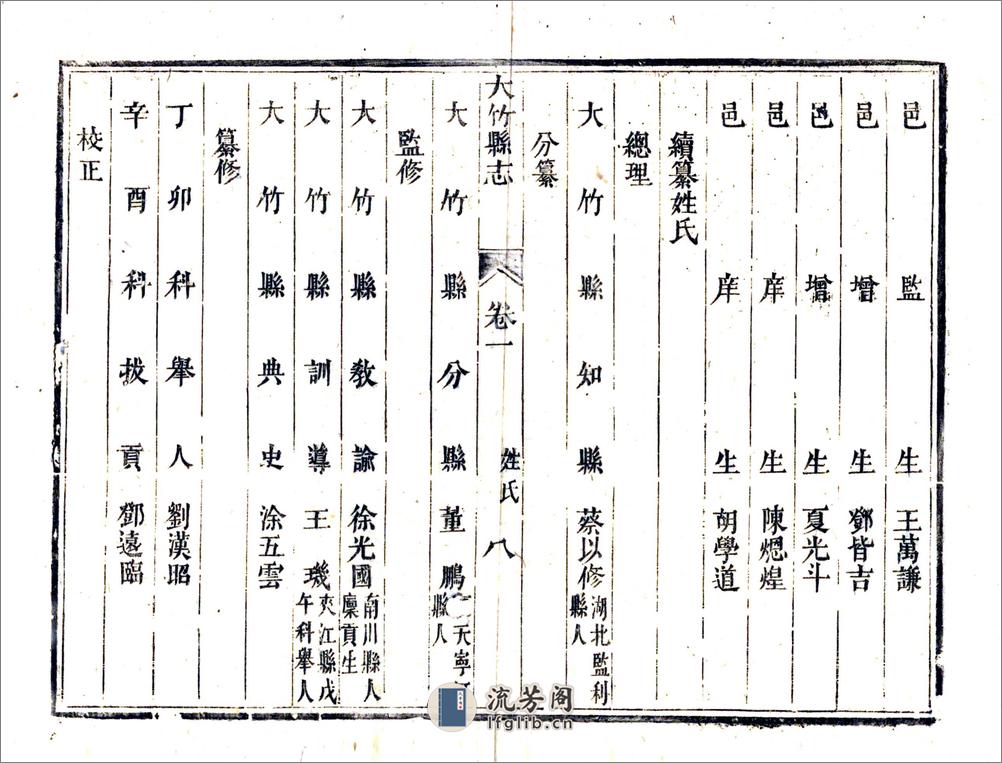 邑監生王萬謙
邑增生鄧皆吉
邑增生夏光斗
邑庠生陳熜煌
邑庠生胡學道
續纂姓氏
總理
大竹縣知縣蔡以修湖北監利縣人
分纂
大竹縣分縣董鵬天寧縣人
大竹縣志 卷一 姓氏 八
監修
大竹縣教諭徐光國南川縣人廩貢生
大竹縣訓導王璣夾江縣戊午科舉人
大竹縣典史涂五雲
纂修
丁卯科舉人劉漢昭
辛酉科拔貢鄧遠臨
校正
流芳阁
lfglib.cn